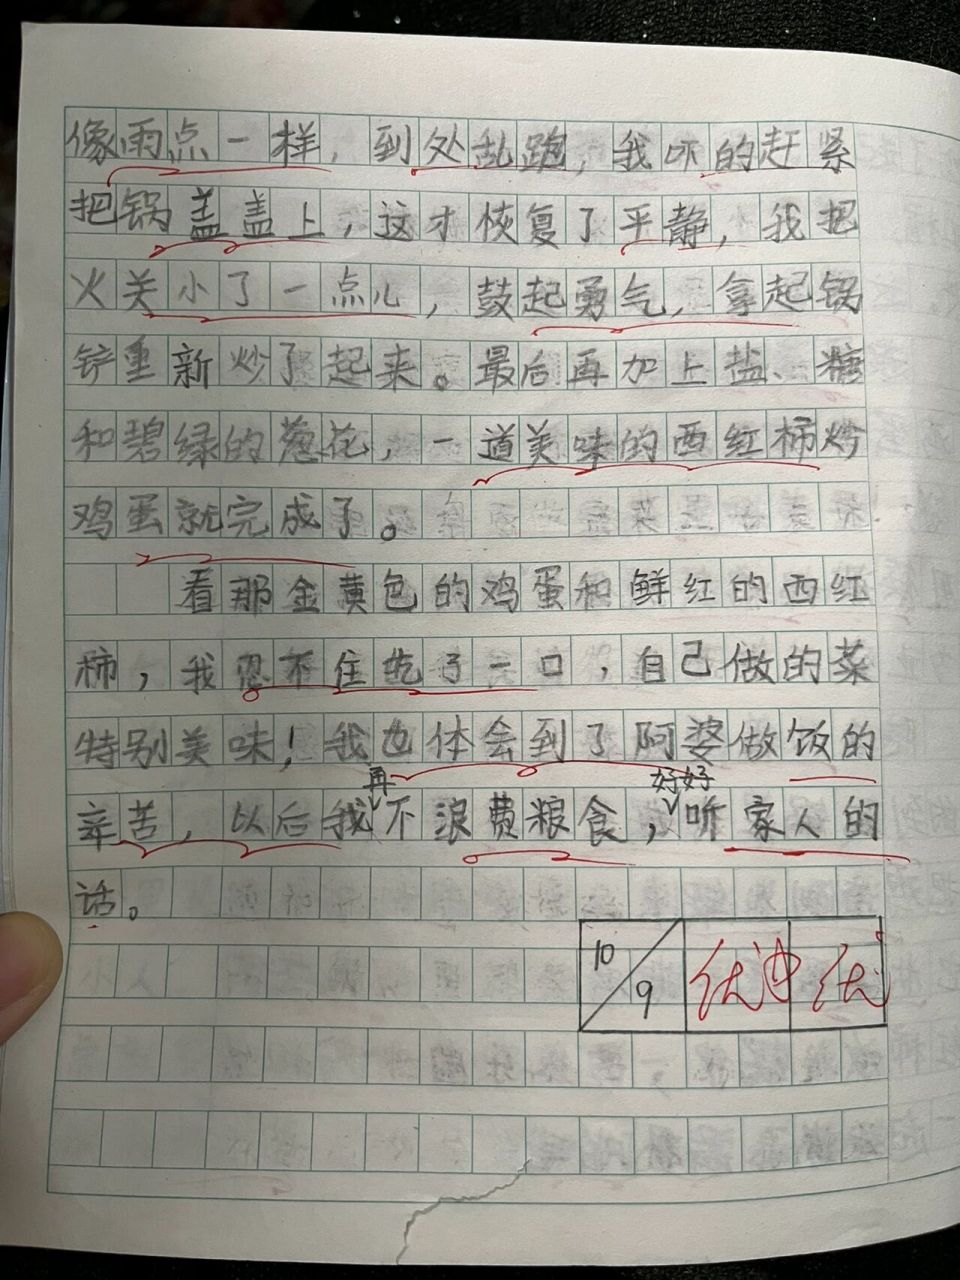 像雨点一样，到处乱跑，我吓的赶紧
把锅盖盖上，这才恢复了平静，我把
火关小了一点儿，鼓起勇气，拿起锅
铲重新炒了起来。最后再加上盐、糖
和碧绿的葱花，一道美味的西红柿炒
鸡蛋就完成了。
看那金黄色的鸡蛋和鲜红的西红
柿，我忍不住吃了一口，自己做的菜
特别美味！我也体会到了阿婆做饭的
辛苦，以后我再不浪费粮食，好好听家人的
话。
10/9 优中 优